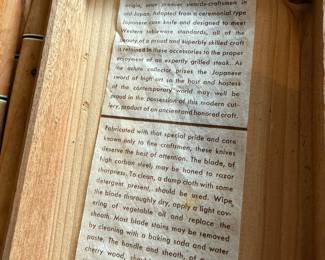 origin, once premier swords-craftsmen in
old Japan. Adapted from a ceremonial type
Japanese case knife and designed to meet
Western tableware standards, all of the
beauty of a proud and superbly skilled craft
is retained in these accessories to the proper
enjoyment of an expertly grilled steak. As
the astute collector prizes the Japanese
sword of high art so the host and hostess
of the contemporary world may well be
proud in the possession of this modern cut-
lery, product of an ancient and honored craft.
Fabricated with that special pride and care
known only to fine craftsmen, these knives
deserve the best of attention. The blade, of
high carbon steel, may be honed to razor
sharpness. To clean, a damp cloth with some
detergent present, should be used. Wipe
the blade thoroughly dry, apply a light cov-
ering of vegetable oil and replace the
sheath. Most blade stains may be removed
by cleaning with a baking soda and water
paste. The handle and sheath, of
cherry wood, should